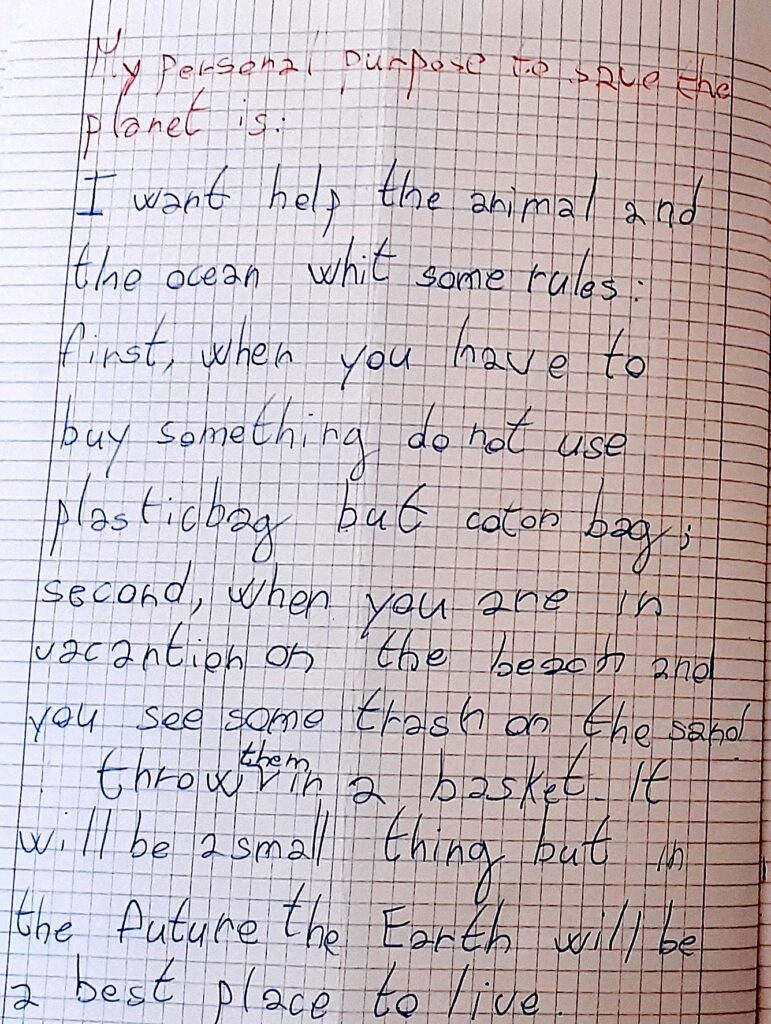 My personal purpose to save the
planet is:
I want help the animal and
the ocean whit some rules:
first, when you have to
buy something do not use
plastic bag but coton bag;
second, when you are in
vacantion on the beach and
you see some trash on the sand
them
throw in a basket. It
will be a small thing but in
the future the Earth will be
a best place to live.